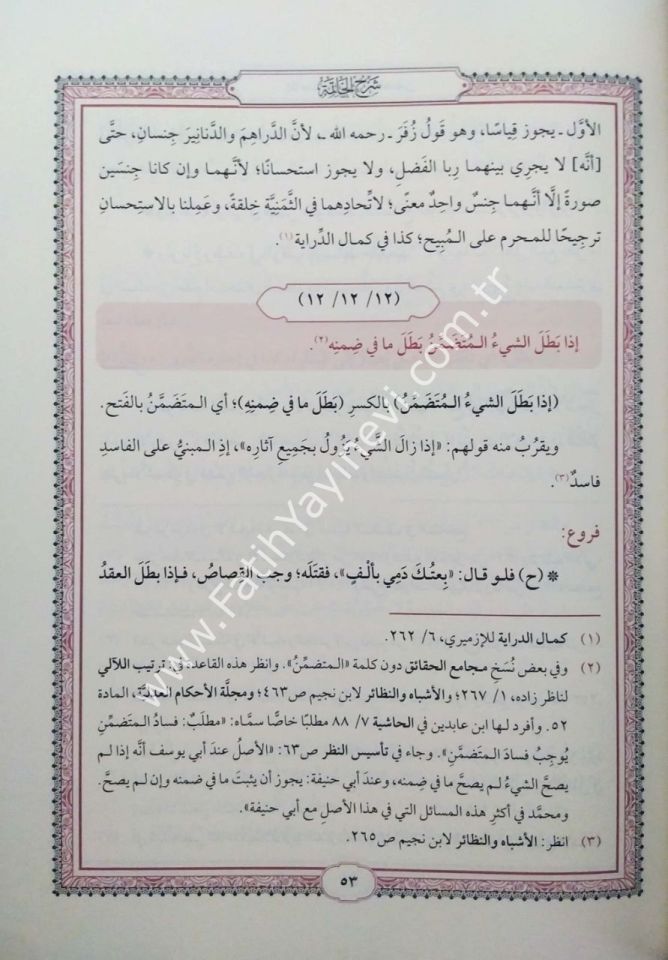 شَرْحُ الخَاتِمَة
الأوَّل ـ يجوز قِياسًا، وهو قَولُ زُفَرَ ـ رحمه الله ـ، لأنَّ الدَّراهِمَ والدَّنانِيرَ جِنسانِ، حتَّى
[أنَّه] لا يجرِي بينهما رِبا الفَضلِ، ولا يجوز استحسانًا؛ لأنَّهما وإن كانا جِنسَينِ
صورةً إلَّا أنَّهما جِنسٌ واحِدٌ معنًى؛ لاتِّحادِهما في الثَّمَنِيَّةِ خِلقةً، وعَمِلنا بالاستِحسانِ
ترجِيحًا للمحرمِ على المُبِيحِ؛ كذا في كمال الدِّراية(١).
(١٢/ ١٢/ ١٢)
إذا بَطَلَ الشيءُ المُتَضَمِّنُ بَطَلَ ما في ضِمنِه(٢).
(إذا بَطَلَ الشيءُ المُتَضَمِّنُ) بالكسرِ (بَطَلَ ما في ضِمنِهِ)؛ أي المتضَمَّنُ بالفَتح.
ويقرُبُ منه قولهم: «إذا زالَ الشَّيءُ يزُولُ بجَمِيعِ آثارِه»، إذِ المبنيُّ على الفاسدِ
فاسدٌ(٣).
فروع:
* (ح) فلو قال: «بِعتُكَ دَمِي بألفٍ»، فقتَلَه؛ وجب القِصاصُ، فإذا بطَلَ العقدُ
(١) كمال الدراية للإزميري، ٦/ ٢٦٢.
(٢) وفي بعض نُسَخِ مجامع الحقائق دون كلمة «المتضمِّنُ». وانظر هذه القاعدة في: ترتيب اللآلي
لناظر زاده، ١/ ٢٦٧؛ والأشباه والنظائر لابن نجيم ص٤٦٣؛ ومجلَّة الأحكام العدليَّة، المادة
٥٢. وأفرد لها ابن عابدين في الحاشية ٧/ ٨٨ مطلبًا خاصًّا سمَّاه: «مطلَبٌ: فسادُ المتضمِّنِ
يُوجِبُ فسادَ المتضمَّنِ». وجاء في تأسيس النظر ص٦٣: «الأصلُ عندَ أبي يوسف أنَّه إذا لم
يصحَّ الشيءُ لم يصحَّ ما في ضِمنه، وعندَ أبي حنيفة: يجوز أن يثبتَ ما في ضمنه وإن لم يصحَّ.
ومحمَّد في أكثرِ هذه المسائل التي في هذا الأصل مع أبي حنيفة».
(٣) انظر: الأشباه والنظائر لابن نجيم ص٢٦٥.
٥٣
www.FatihYayinevi.com.tr